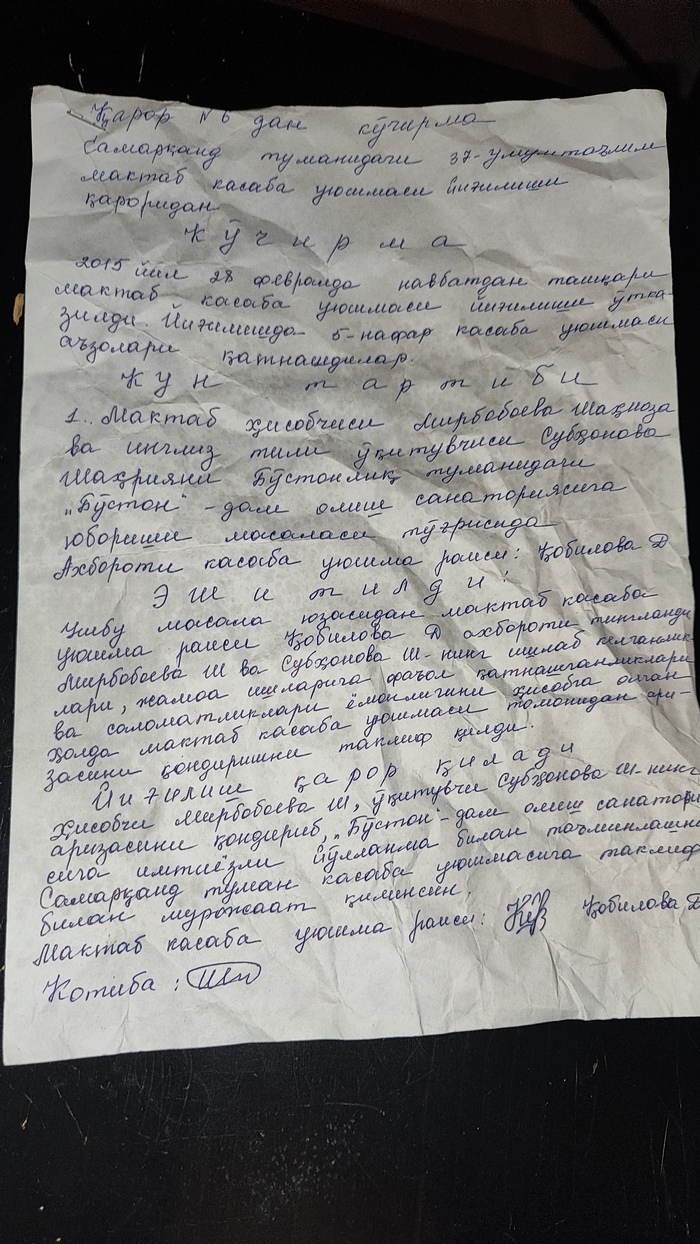 Қарор №6 дан кўчирма
Самарқанд туманидаги 37-умумтаълим
мактаб касаба уюшмаси йиғилиши
қароридан
Кўчирма
2015 йил 28 февралда навбатдан ташқари
мактаб касаба уюшмаси йиғилиши ўтка-
зилди. Йиғилишда 5-нафар касаба уюшмаси
аъзолари қатнашдилар.
Кун тартиби
1. Мактаб ҳисобчиси Мирбобоева Шаҳноза
ва инглиз тили ўқитувчиси Субҳонова
Шаҳрияни Бўстонлиқ туманидаги
„Бўстон" - дам олиш санаториясига
юбориш масаласи тўғрисида
Ахбороти касаба уюшма раиси: Қобилова Д
Эшитилди:
Ушбу масала юзасидан мактаб касаба
уюшма раиси Қобилова Д ахбороти тингланди
Мирбобоева Ш ва Субҳонова Ш-нинг ишлаб келганлик-
лари, жамоа ишларига фаъол қатнашганликлари
ва саломатликлари ёмонлигини ҳисобга олган
ҳолда мактаб касаба уюшмаси томонидан ари-
засини қондиришни таклиф қилди.
Йиғилиш қарор қилади
Ҳисобчи Мирбобоева Ш, ўқитувчи Субҳонова Ш-нинг
аризасини қондириб, „Бўстон"- дам олиш санатори
сига имтиёзли йўлланма билан таъминлашни
Самарқанд туман касаба уюшмасига таклиф
билан мурожаат қилинсин.
Мактаб касаба уюшма раиси: Қобилова Д
Котиба: